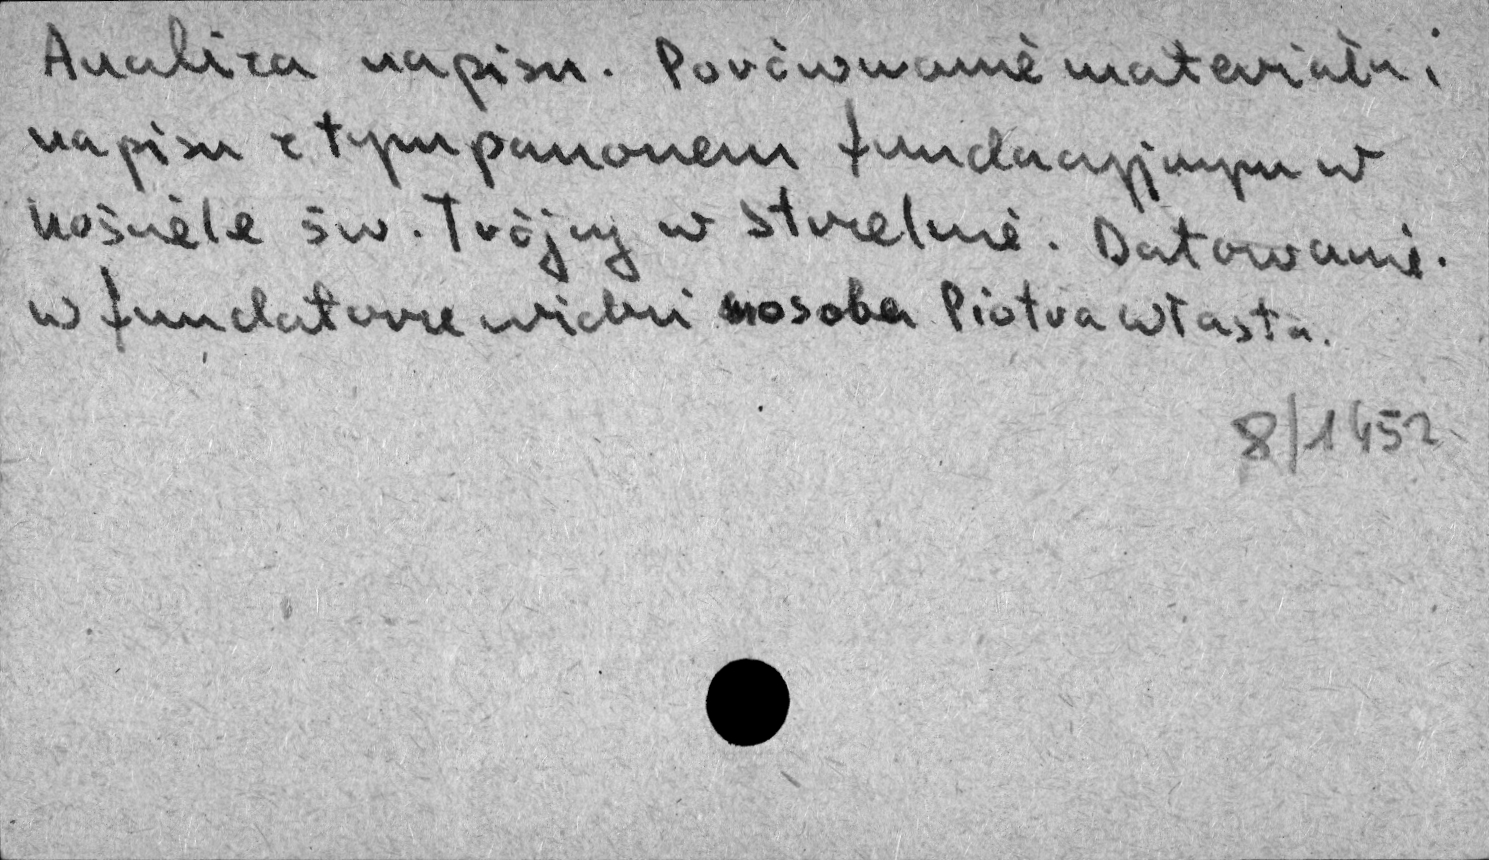 Analiza napisu. Porównanie materiału i
napisu z tympanonem fundacyjnym w
kościele św. Trójcy w Strzelnie. Datowanie.
w fundatorze widzi osoba Piotra Własta.
8/1452